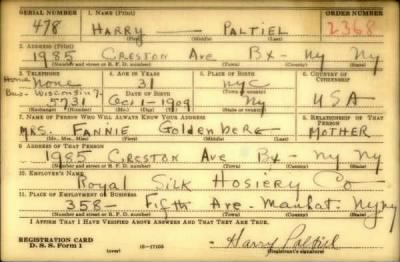 SERIAL NUMBER 1. NAME (Print) ORDER NUMBER
478 HARRY — PALTIEL 2368
(First) (Middle) (Last)
2. ADDRESS (Print)
1985 CRESTON Ave Bx - Ny Ny
(Number and street or R. F. D. number) (Town) (County) (State)
3. TELEPHONE 4. AGE IN YEARS 5. PLACE OF BIRTH 6. COUNTRY OF CITIZENSHIP
Home None 31 nyc
Bus- Wisconsin 7- DATE OF BIRTH (Town or county)
5731 Oct 1 - 1909 Ny USA
(Exchange) (Number) (Mo.) (Day) (Yr.) (State or country)
7. NAME OF PERSON WHO WILL ALWAYS KNOW YOUR ADDRESS 8. RELATIONSHIP OF THAT PERSON
MRS. FANNIE Goldenberg MOTHER
(Mr., Mrs., Miss) (First) (Middle) (Last)
9. ADDRESS OF THAT PERSON
1985 CRESTON Ave Bx - Ny Ny
(Number and street or R. F. D. number) (Town) (County) (State)
10. EMPLOYER'S NAME
Royal Silk Hosiery Co
11. PLACE OF EMPLOYMENT OR BUSINESS
358 - Fifth Ave - Manhat. Ny Ny
(Number and street or R. F. D. number) (Town) (County) (State)
I AFFIRM THAT I HAVE VERIFIED ABOVE ANSWERS AND THAT THEY ARE TRUE.
REGISTRATION CARD
D. S. S. Form 1 (over) 16-17105 Harry Paltiel
(Registrant's signature)